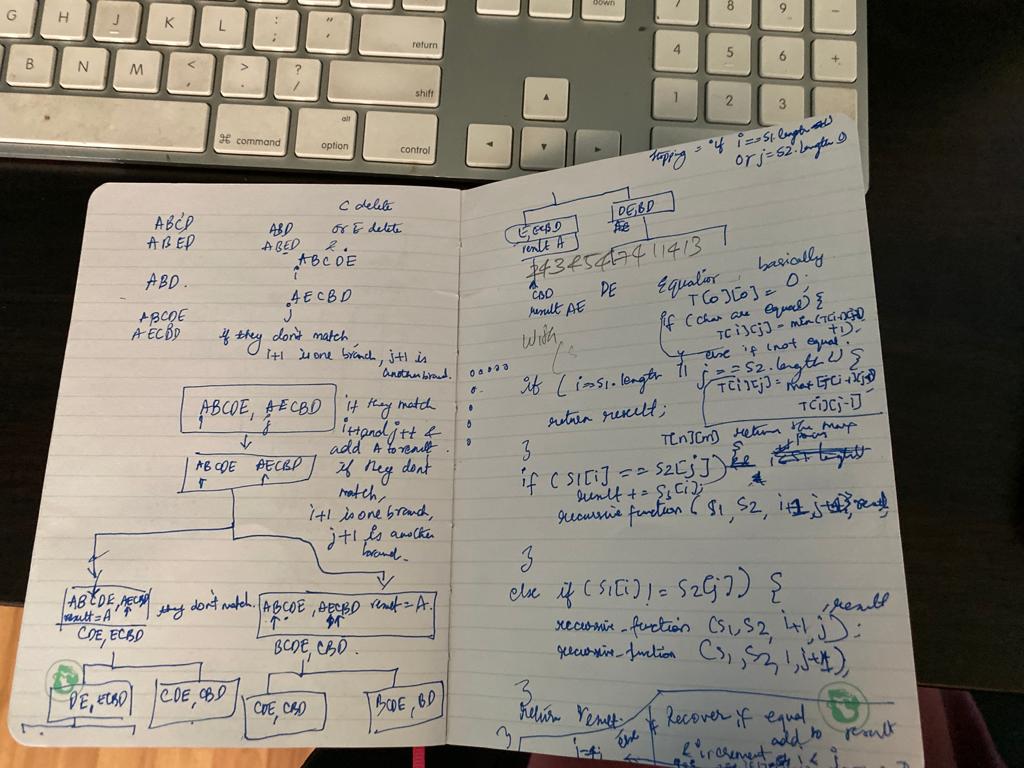 G H J K L : ; " ' return
B N M < , > . ? / shift
⌘ command alt option control
down
7 8 9 -
4 5 6 +
1 2 3
C delete
ABCD ABD or E delete
ABED ABED &
ABCDE
i
ABD.
AECBD
j
ABCDE
AECBD
if they don't match
i+1 is one branch, j+1 is
another
ABCDE, AECBD
j
if they match
i++ and j++ &
add A to result
ABCDE AECBD
if they dont
match,
i+1 is one branch,
j+1 is another
ABCDE, AECBD
result = A
they don't match.
ABCDE, AECBD result = A.
CDE, ECBD
BCDE, CBD.
DE, ECBD
CDE, CBD
CDE, CBD
BCDE, BD
stopping = if i == S1.length
or j = S2.length
E, ECBD
result A
DE, BD
CBD
result AE
DE
Equation, basically
T[0][0] = 0;
if (char are equal) {
else if (not equal
with
if ( i = S1.length || j == S2.length) {
return result;
}
T[i][j-1]
T[n][m] return the max
if (S1[i] == S2[j])
result += S1[i];
recursive function ( S1, S2,
}
else if (S1[i] != S2[j]) {
recursive_function (S1, S2, i+1, j, result);
recursive_function (S1, S2, i, j+1),
}
return result.
}
else
Recover if equal
add to result
& increment